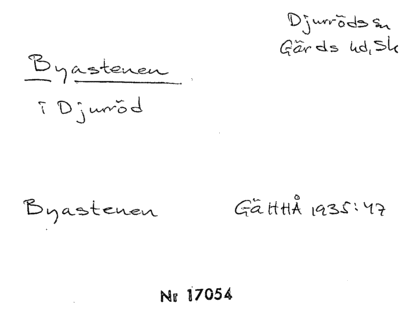 Djurröds sn
Gärds hd, Sk
Byastenen
i Djurröd
Byastenen GäHHÅ 1935:47
Nr 17054